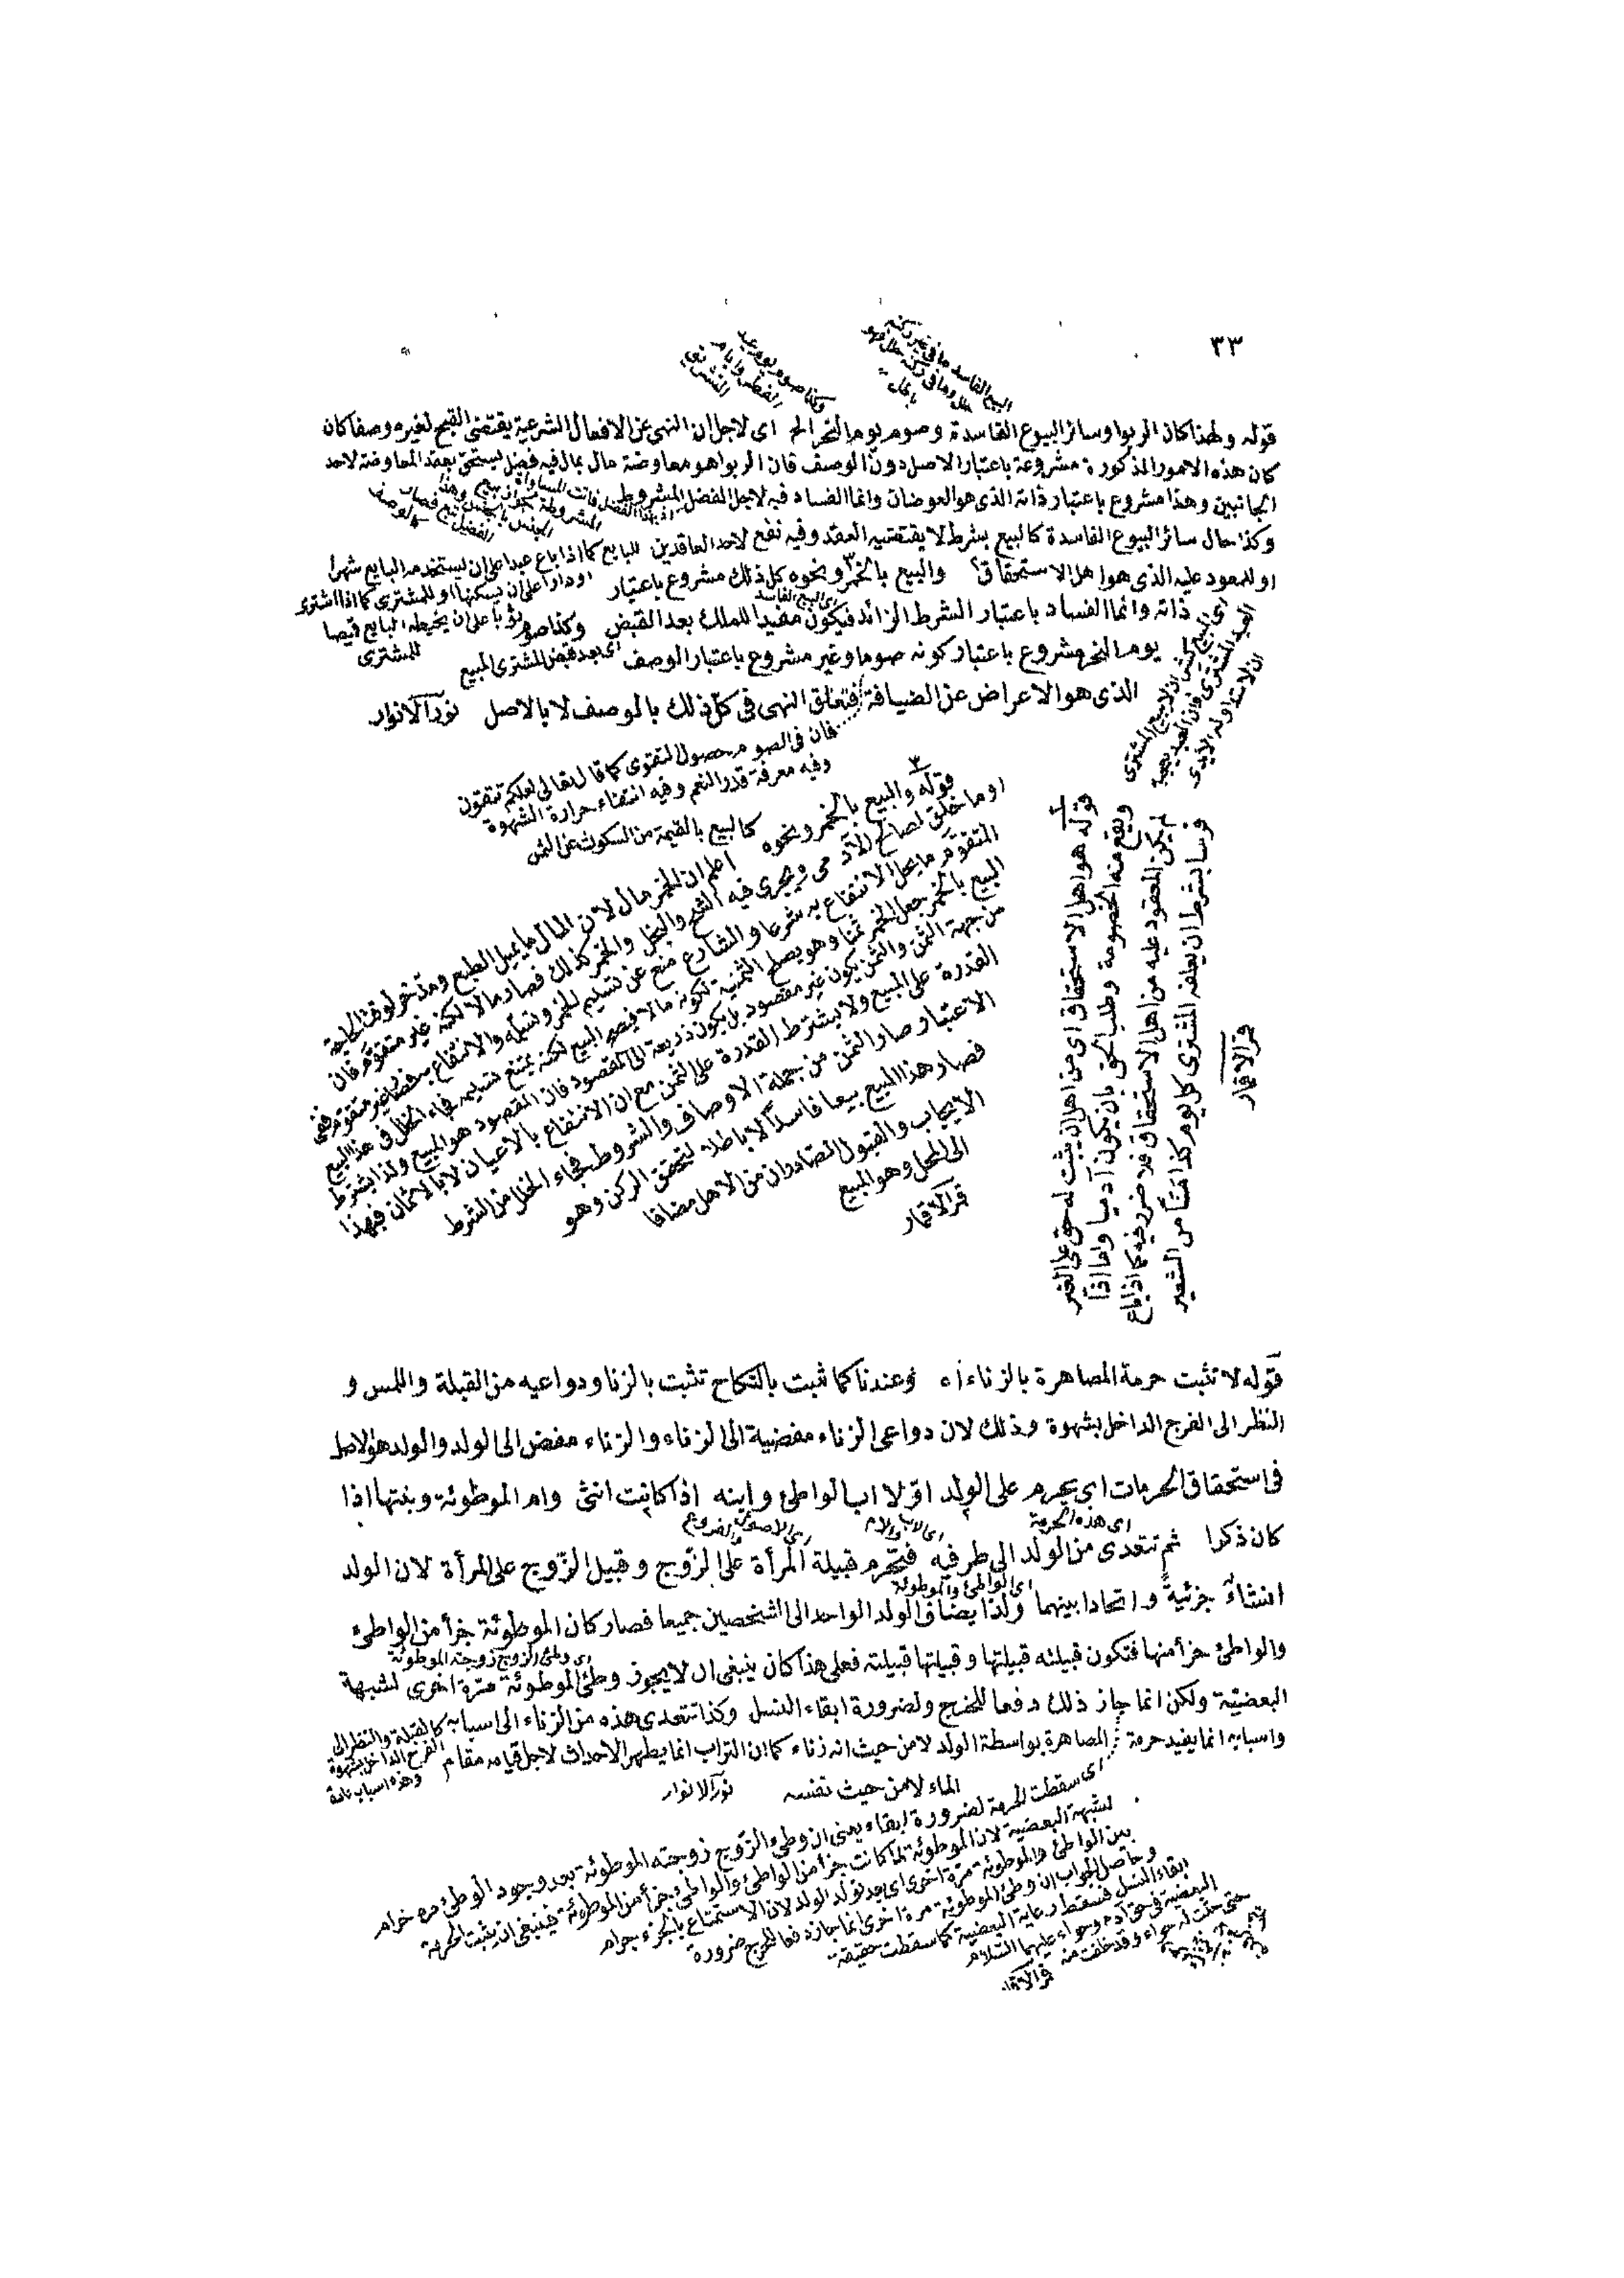 ٣٣
البيع الفاسد ما في
وكذا صوم يوم عيد
الفطر وايام
التشريق
قوله ولهذا كان الربوا وسائر البيوع الفاسدة وصوم يوم النحر الخ اى لاجل ان النهى عن الافعال الشرعية يقتضى القبح لغيره وصفا كان
كان هذه الامور المذكورة مشروعة باعتبار الاصل دون الوصف فان الربوا هو معاوضة مال بمال فيه فضل يستحق بعقد المعاوضة لاحد
الجانبين وهذا مشروع باعتبار ذاته الذى هو العوضان وانما الفساد فيه لاجل الفضل المشروط
وكذا حال سائر البيوع الفاسدة كالبيع بشرط لا يقتضيه العقد وفيه نفع لاحد العاقدين للبايع كما اذا باع عبدا على ان يستخدمه البايع شهرا
او دارا على ان يسكنها او للمشترى كما اذا اشترى
ثوبا على ان يخيطه البايع قميصا
للمشترى
او للمعود عليه الذى هو اهل الاستحقاق والبيع بالخمر ونحوه كل ذلك مشروع باعتبار
اى البيع الفاسد
ذاته وانما الفساد باعتبار الشرط الزائد فيكون مفيدا للملك بعد القبض وكذا صوم
اى بعد قبض المشترى المبيع
يوم النحر مشروع باعتبار كونه صوما وغير مشروع باعتبار الوصف
الذى هو الاعراض عن الضيافة فتعلق النهى فى كل ذلك بالوصف لا بالاصل نور الانوار
فان فى الصوم حصول التقوى كما قال تعالى لعلكم تتقون
وفيه معرفة قدر النعم وفيه انتفاء حرارة الشهوة
٣
قوله والبيع بالخمر ونحوه كالبيع بالقيمة من السكوت عن الثمن
اعلم ان الخمر مال لان المال ما يميل الطبع ومدخر لوقت الحاجة
او ما خلق لمصالح الآدمى ويجرى فيه الشح والبخل والخمر كذلك فصار مالا لكنه غير متقوم فان
المتقوم ما يحل الانتفاع به شرعا والشارع منع عن تسليم الخمر وتسلمه والانتفاع به فصار غير متقوم ففى
البيع بالخمر جعل الخمر ثمنا وهو يصلح للثمنية لكونه مالا فيصح البيع لكنه يمتنع تسليمه فجاء الخلل فى هذا البيع
من جهة الثمن والثمن يكون غير مقصود بل يكون ذريعة الى المقصود فان المقصود هو المبيع ولذا يشترط
القدرة على المبيع ولا يشترط القدرة على الثمن مع ان الانتفاع بالاعيان لا بالاثمان فبهذا
الاعتبار صار الثمن من جملة الاوصاف والشروط فجاء الخلل من الشرط
فصار هذا البيع بيعا فاسدا لا باطلا لتحقق الركن وهو
الايجاب والقبول الصادران من الاهل مضافا
الى المحل وهو المبيع
قمر الاقمار
قوله هو اهل الاستحقاق اى من اهل ان يثبت له حق على الغير
ويقع منه الخصومة وطلب الحق بان يكون آدميا واما اذا
لم يكن المعقود عليه من اهل الاستحقاق فلا ضرر فيه كما اذا باع
فرسا بشرط ان يعلفه المشترى كل يوم كذا منا من الشعير
قمر الاقمار
قوله لا تثبت حرمة المصاهرة بالزناء اه وعندنا كما ثبت بالنكاح تثبت بالزنا ودواعيه من القبلة واللمس و
النظر الى الفرج الداخل بشهوة وذلك لان دواعى الزناء مفضية الى الزناء والزناء مفض الى الولد والولد هو الاصل
فى استحقاق الحرمات اى يحرم على الولد اولا اب الواطئ وابنه اذا كانت انثى وام الموطوئة وبنتها اذا
اى هذه الحرمة اى الاب والام اى الاصول والفروع
كان ذكرا ثم تتعدى من الولد الى طرفيه فتحرم قبيلة المرأة على الزوج وقبيل الزوج على المرأة لان الولد
اى الواطئ والموطوئة
انشاء جزئية واتحادا بينهما ولذا يضاف الولد الواحد الى الشخصين جميعا فصار كان الموطوئة جزأ من الواطئ
والواطئ جزأ منها فتكون قبيلته قبيلتها وقبيلتها قبيلته فعلى هذا كان ينبغى ان لا يجوز وطئ الموطوئة مرة اخرى لشبهة
اى وطئ الزوج زوجته الموطوئة
البعضية ولكن انما جاز ذلك دفعا للحرج ولضرورة ابقاء النسل وكذا تتعدى هذه من الزناء الى اسبابه كالقبلة والنظر الى
الفرج الداخل بشهوة
وهذه اسباب
واسبابه انما يفيد حرمة المصاهرة بواسطة الولد لا من حيث انه زناء كما ان التراب انما يطهر الاحداث لاجل قيامه مقام
الماء لا من حيث نفسه نور الانوار
اى سقطت الحرمة لضرورة ابقاء يعنى ان وطئ الزوج زوجته الموطوئة بعد وجود الوطئ مرة حرام
لشبهة البعضية لان الموطوئة لما كانت جزأ من الواطئ والواطئ جزأ من الموطوئة فينبغى ان يثبت الحرمة
بين الواطئ والموطوئة مرة اخرى اى بعد تولد الولد لان الاستمتاع بالجزء حرام
وحاصل الجواب ان وطئ الموطوئة مرة اخرى انما جاز دفعا للحرج ضرورة
ابقاء النسل فتسقط رعاية البعضية كما سقطت حقيقة
البعضية فى حق آدم وحواء عليهما السلام
حتى حلت له حواء وقد خلقت منه قمر الاقمار